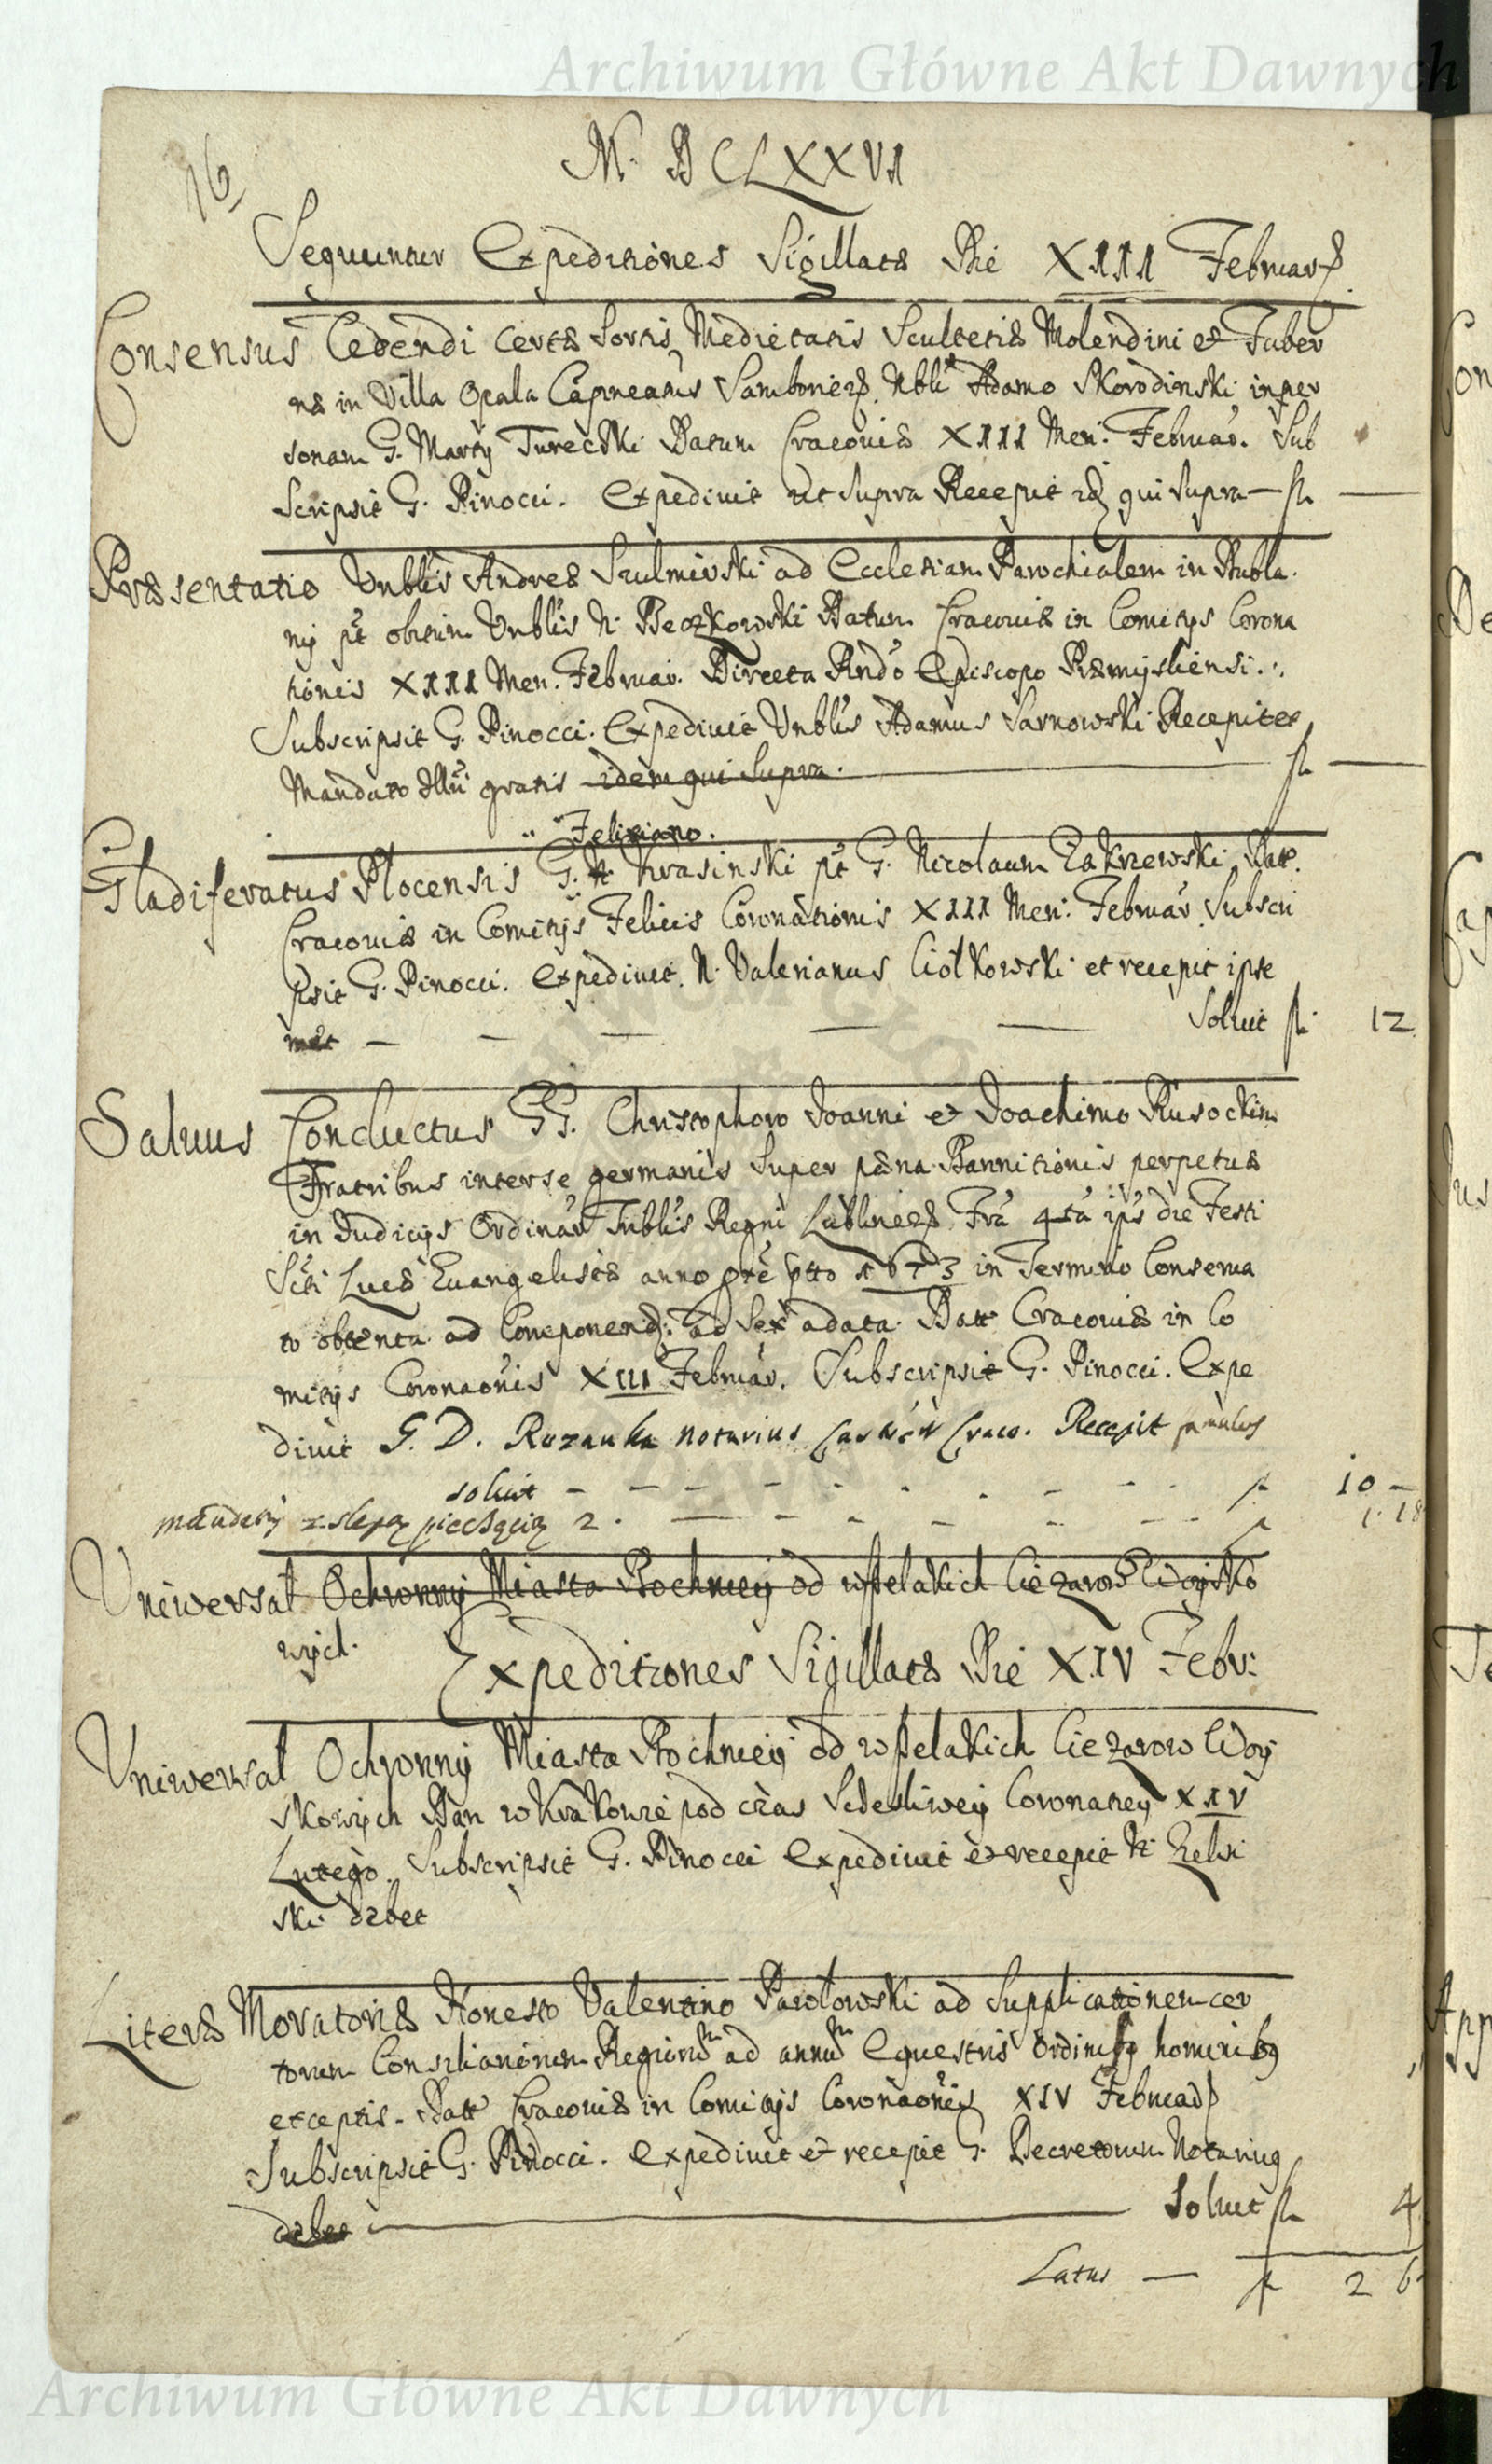 Archiwum Główne Akt Dawnych
16
M. DCLXXVI
Sequuntur Expeditiones Sigillatæ Die XIII Februar
Consensus Cedendi certæ Sortis Medietatis Scultetiæ Molendini et Taber
næ in Villa Opala Capneatus Samborien. Nbli Adamo Skorodinski in per
sonam G. Marty Turecski Datum Cracoviæ XIII Men: Februar. Sub
scripsit G. Pinocci. Expedivit ut supra Recepit idq qui supra — fl —
Præsentatio Vnblis Andreæ Szulmirski ad Ecclesiam Parochialem in Dubla
nÿ pt obitum Vnblis N. Beczkowski Datum Cracoviæ in Comitÿs Corona
tionis XIII Men. Februar. Directa Rndo Episcopo Præmÿsliensi.
Subscripsit G. Pinocci. Expedivit Vnblis Adamus Sarnowski Recepit ex
Mandato Illmi gratis idem qui supra. fl —
Feliciano.
Gladiferatus Plocensis G. N. Krasinski pt G. Nicolaum Zakrzewski Datt.
Cracoviæ in Comitÿs Felicis Coronationis XIII Men: Februar Subscri
psit G. Pinocci. Expedivit N. Valerianus Ciołkowski et recepit ipse
met — — — — — Soluit fl 12
Saluus Conductus GG. Christophoro Joanni et Joachimo Rusockim
Fratribus inter se germanis super pæna Bannitionis perpetuæ
in Judicÿs Ordinar Triblis Regni Lublinen Fra 4ta ips die Festi
Scti Lucæ Euangelistæ anno prt 1673 in Termino Conserua
to obtenta ad Componend: ad Sex adata. Datt Cracoviæ in Co
mitÿs Coronaonis XIII Februar. Subscripsit G. Pinocci. Expe
divit G. D. Rozanka notarius Crac. Recepit
soluit - - - - - - - fl 10 -
z slepą pieczęcią 2. — - - - - fl 1. 18
Vniwersał Ochronnÿ Miasta Bochnieÿ od wszelakich Ciezarow Woÿsko
wÿch.
Expeditiones Sigillatæ Die XIV Febr:
Vniwersał Ochronnÿ Miasta Bochnieÿ od wszelakich Ciezarow Woÿ
skowÿch Dan w Krakowie pod czas Sczesliweÿ Coronatieÿ XIV
Lutego. Subscripsit G. Pinocci Expedivit et recepit N. Zelsi
ski debet
Literæ Moratoriæ Honesto Valentino Pawlowski ad Supplicationem cer
torum Consiliariorum Regiorum ad annum Equestris Ordinis hominibq
exceptis. Datt Cracoviæ in Comitÿs Coronaonis XIV Februar
Subscripsit G. Pinocci. Expedivit et recepit G. Decretorum Notariuq
debet — Soluit fl 4
Latus — fl 26
Archiwum Główne Akt Dawnych